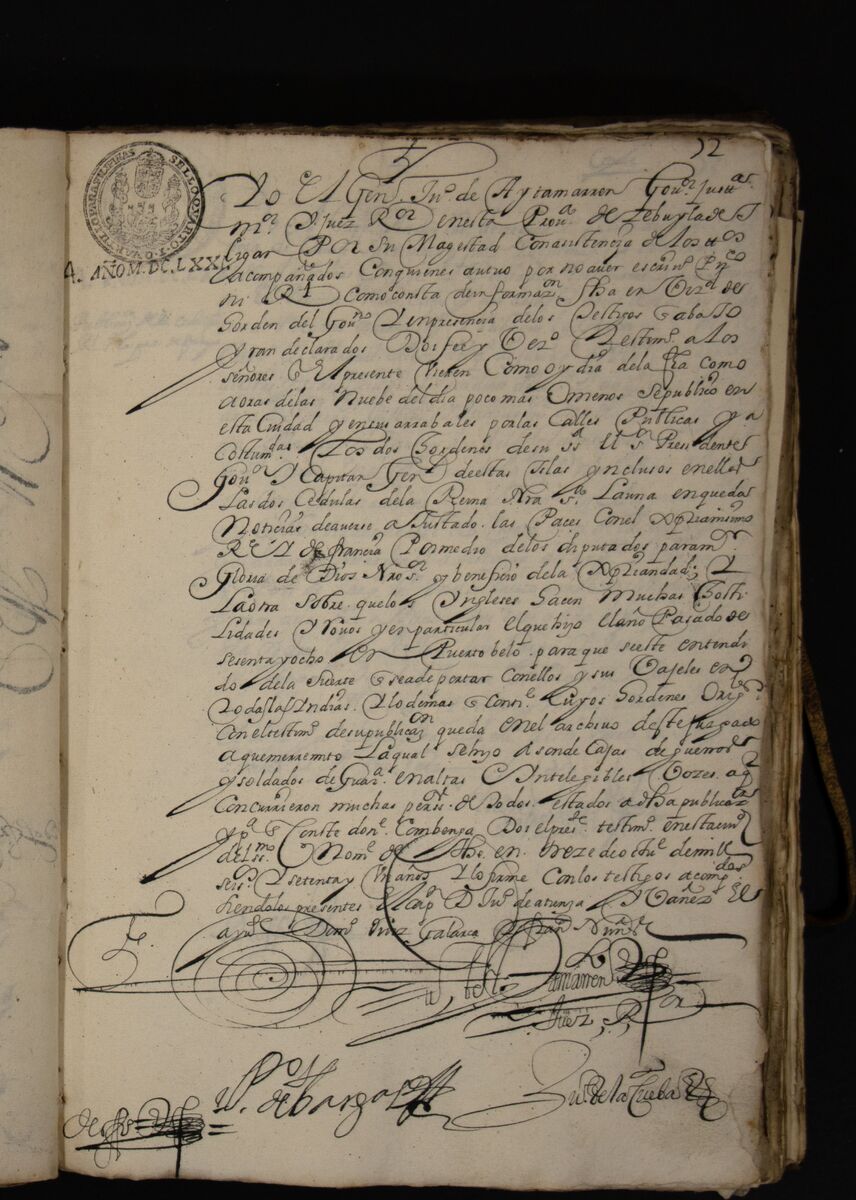 SELLO QVARTO
PARA FILIPINAS
A. AÑO M.DC.LXXI
52
Yo El Gen.l Ju.o de Aytamarren Gou.or Justt.a
m.or Y Juez R.or enesta Prou.a de Zebuyla de
ligar Por Su Magestad Conasistencia de los tt.os
acompañados Conquienes autuo por no auer escriu.o Pu.co
ni R.l Como consta de informaz.on fha en de
horden del Gou.no Y en presencia delos testigos q abaxo
yran declarados Doi fee y testim.o a los
señores q El presente Vieren Cómo oy dia dela fha como
a oras delas Nuebe del dia poco mas o menos se publico en
esta Ciudad y en sus arrabales por las Calles Publicas y a
costum.das Los dos hordenes de su s.a El s.or Presidente
Gou.or Y Capitan Gen.l destas Islas ynclusos enellos
Las dos Cedulas dela Reina Nra s.ra La una en que da
Noticias de auerse a Justado las Paces Con el Xptianisimo
Rey de francia Por medio de los diputados para m.or
Gloria de Dios Nro s.or y beneficio dela Xptiandad; Y
La otra sobre que los Yngleses hacen muchas hosti
lidades Y Rouos y en particular el que hijo el año Pasado de
sesenta y ocho en Puerto belo para que se este entendi
do dela suerte q se a de portar Con ellos y sus Vajeles en
todas las Yndias Y lo demas q Conti.e Cuyos hordenes Orig.s
Con el testim.o de su publicaz.on queda en el archiuo deste juzgado
a que me rremito La qual se hijo a son de Cajas de guerra
y soldados de Guar.a en altas E Yntelegibles Vozes a q
Concurrieron muchas pers.s de todos estados a dha publicaz.on
y p.a q Conste don.e Combenga Doi el pres.te testim.o en esta ciu.d
del ss.mo Nom.e de Jhs. en treze de octu.e de mill
seis.os Y setenta y Un años Y lo firme Con los testigos acomp.dos
siendolos presentes el cap.n D Ju.o de atienza Y Vañez El
ayu.te Dom.o Ruiz Galarza Y fran.co Nuñez
Aytamarren
Juez, R.or
P.o de Vargas
Ju.o de la Cueba